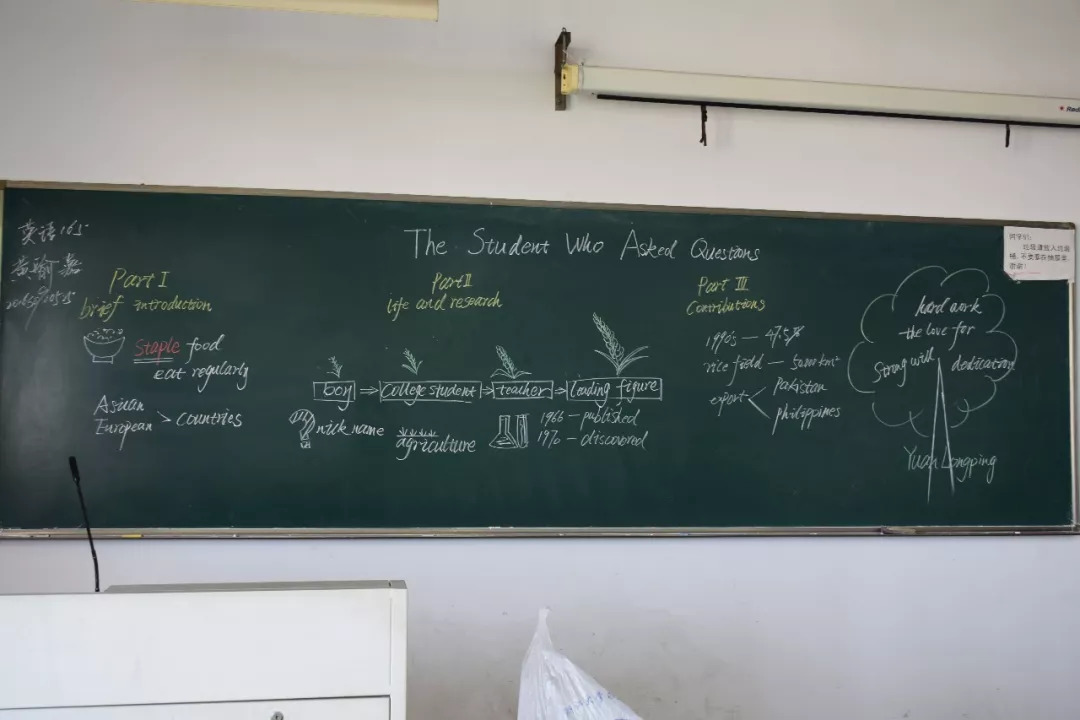 The Student Who Asked Questions
英语165
黄瑜嘉
Part I
brief introduction
staple food
eat regularly
Asian
European > countries
Part II
life and research
boy → college student → teacher → leading figure
nick name
agriculture
1966 — published
1970 — discovered
Part III
Contributions
1990s — 47.5%
rice field — 5000 km²
export <
Pakistan
philippines
hard work
the love for
Strong will
dedication
Yuan Longping
同学们:
垃圾请放入垃圾
桶,不要塞在抽屉里,
谢谢!